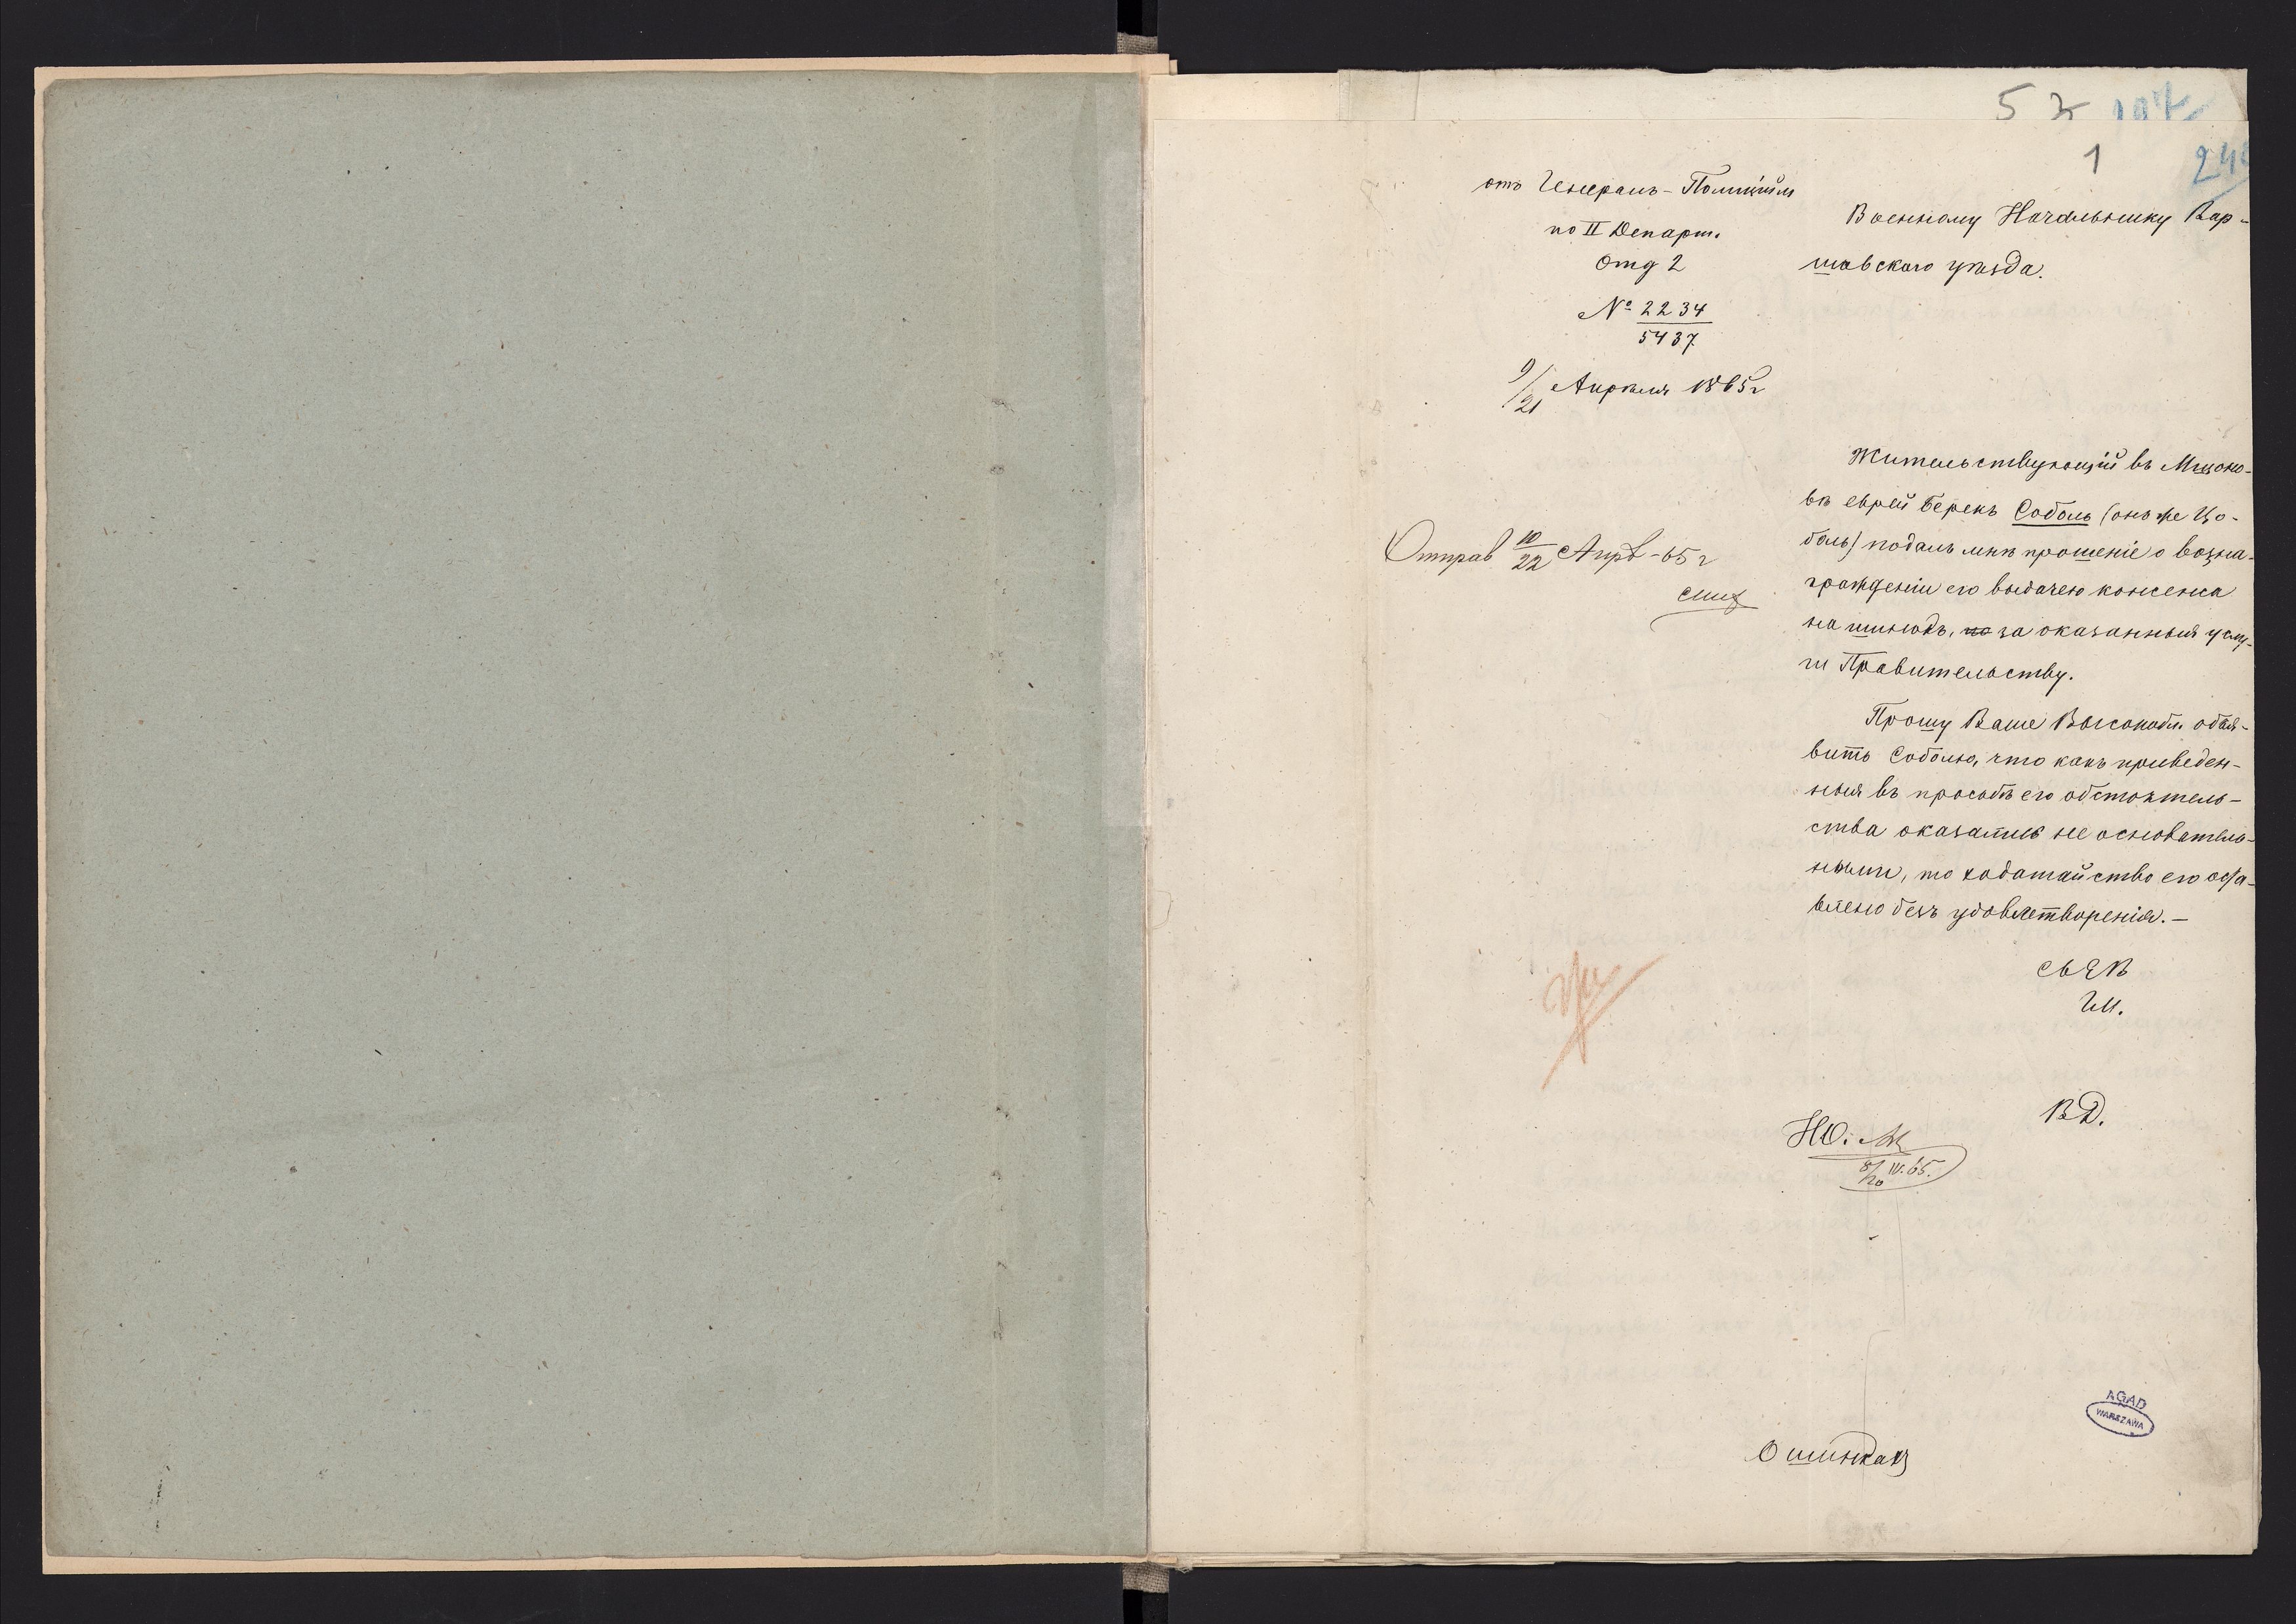 5
1
отъ Генералъ-Полиціймъ
по II Департ.
Отд 2
№ 2234
5437.
9/21 Апрѣля 1865 г
Военному Начальнику Вар-
шавского уѣзда.
Жительствующій въ Мщоно-
вѣ еврей Берекъ Соболь (онъ же Цо-
боль) подалъ мнѣ прошеніе о возна-
гражденіи его выдачею консенса
на шинокъ, за оказанныя услу-
ги Правительству.
Прошу Ваше Высокобл. объя-
вить Соболю, что какъ приведен-
ныя въ просьбѣ его обстоятель-
ства оказались не основатель-
ными, то ходатайство его оста-
влено безъ удовлетворенія.—
Отправ 10/22 Апрѣ-65 г
ВД.
8/20 IV. 65.
О шинках
AGAD
WARSZAWA